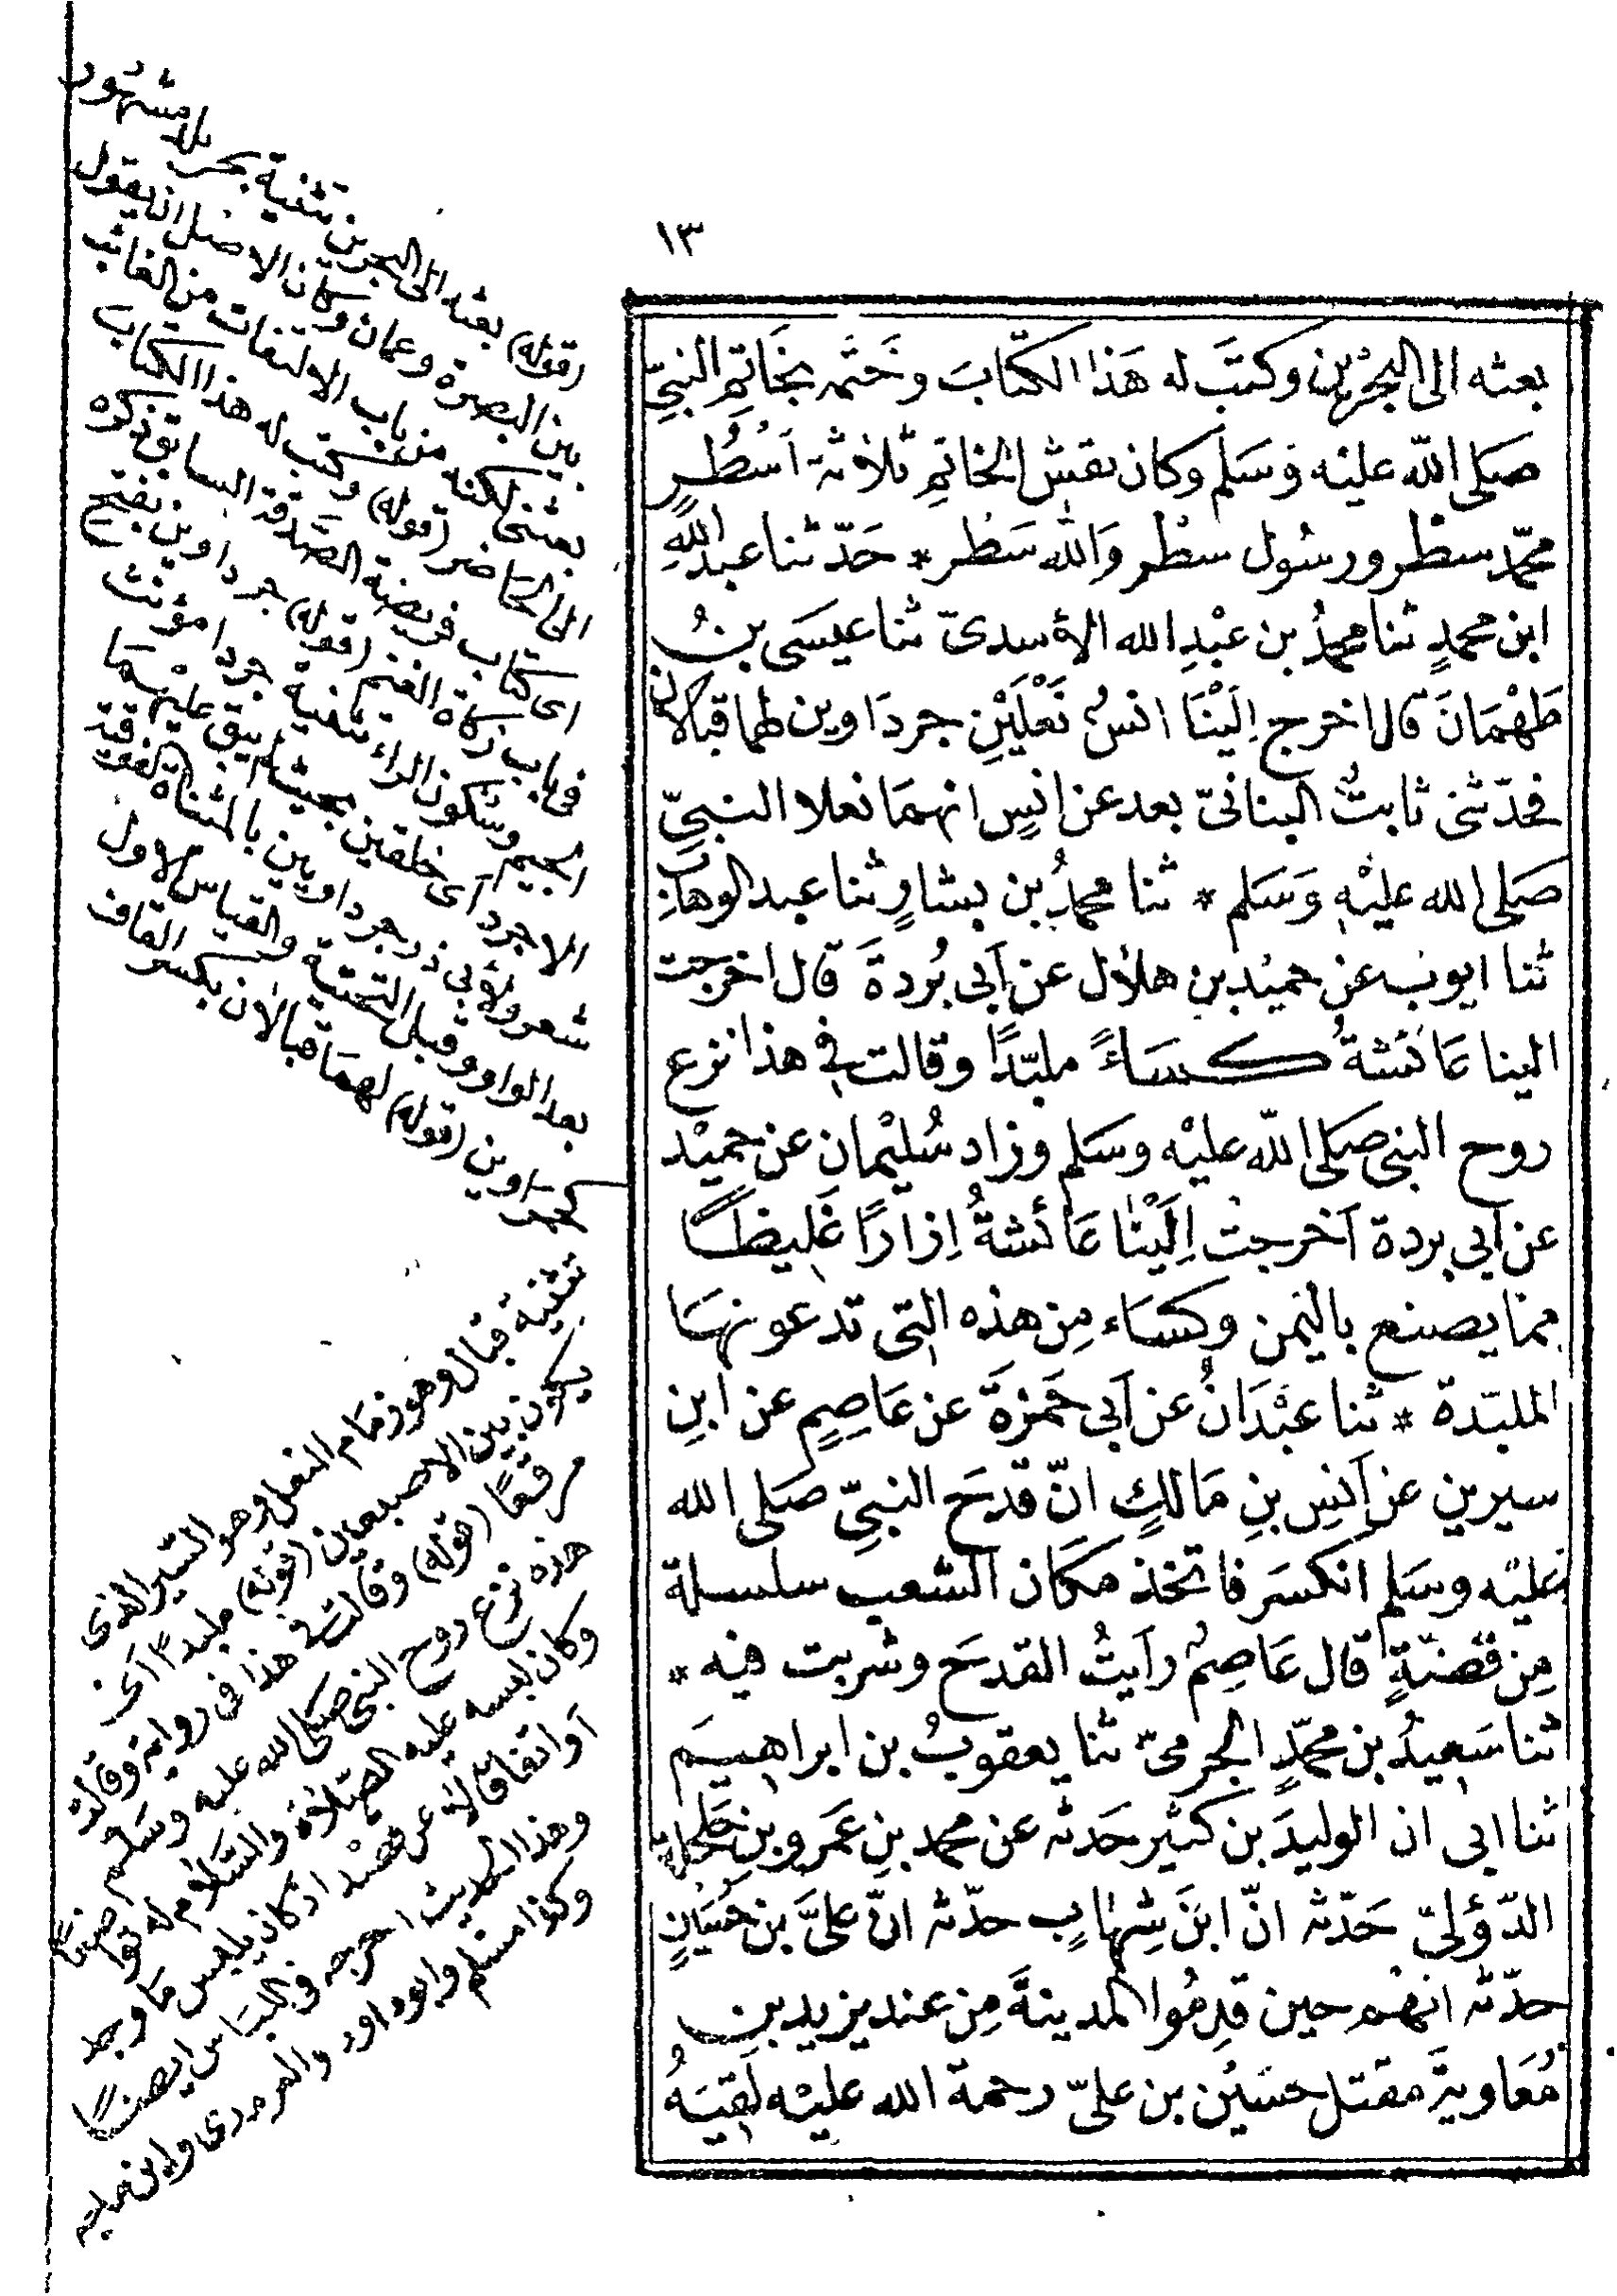 ١٣
بعثه الى البحرين وكتَب له هَذا الكتابَ وخَتَمه بخَاتِمِ النبيّ
صَلى اللّه عليْه وَسَلم وكان نقش الخاتِمِ ثلاثة اَسْطُرٍ
محمّد سطْر ورسُول سطْر وَاللّه سَطْر * حَدّثنا عبْد اللّهِ
ابن محمدٍ ثنا محمدُ بن عبْدِ الله الأسدىّ ثنا عيسَى بنُ
طَهْمَانَ قال اخرج اِلَيْنَا انسُ نَعْلَيْنِ جردَاوين لهما قبالان
فحدّثنى ثابتٌ البنانىّ بعد عن انسٍ انهمَا نعلا النبيِّ
صَلى الله عليْهِ وَسَلم * ثنا محمدُ بن بشارٍ ثنا عبد الوهابِ
ثنا ايوب عن حميْدِ بن هلال عن اَبى بُردةَ قال اخرجت
الينا عَائشةُ كسَاءً ملبّدًا وقالت فى هذا نزع
روح النبى صَلى اللّه عليْه وسَلم وزاد سُليْمان عن حميْد
عن اَبى بردة اَخرجتْ اِلَيْنَا عَائشةُ اِزارًا غَليظًا
ممّا يصنع باليَمن وكسَاء مِن هذه التى تدعونهَا
الملبّدة * ثنا عبْدَانُ عن اَبى حَمزةَ عن عَاصِمٍ عن ابنِ
سيرين عن اَنسِ بنِ مَالكٍ انّ قدحَ النبيِّ صَلى الله
عليْه وسَلم انكسَر فاتخذ مكَان الشعب سلسلة
مِن فضّةٍ قال عَاصِمٌ رأيتُ القدحَ وشربت فيه *
ثنا سَعيدُ بن محمّدٍ الجرمىّ ثنا يعقوبُ بن ابراهيمَ
ثنا ابى ان الوليدَ بن كثير حَدثه عن محمد بنِ عَمرو بنِ حَلحلة
الدّؤلىّ حَدّثه انّ ابنَ شِهَابٍ حدّثه انّ علىَّ بن حُسَيْنٍ
حدّثه انهُم حين قدِمُوا المدينةَ مِن عند يزيد بن
مُعَاويةَ مقتل حسَيْن بن علىّ رحمة الله عليْه لَقِيَهُ
(قوله) بعثه الى البحرين تثنية بحر بلاد مشهور
بين البصرة وعمان وكان الاصل ان يقول
بعثنى لكنه من باب الالتفات من الغائب
الى الحَاضر (قوله) وكتب له هذا الكتابَ
اى كتاب فريضة الصّدقة السابق ذكره
فى باب زكاة الغنم (قوله) جرداوين بفتح
الجيم وسكون الراء تثنية جرداء مؤنث
الاجرد اَى خلقين بحيث لم يبق عليْهمَا
شعر ولابى ذر جرداويين بالمثناة الفوقية
بعد الواو وقبل التحتية والقياس الاول
كحمراوين (قوله) لهمَا قبالان بكسر القاف
تثنية قبال وهو زمَام النعل وهو السّير الذى
يكون بين الاصبعين (قوله) ملبدًا اَى
مرقعًا (قوله) وقالت فى هذا فى رواية وقالت
هذه نزع روح النبى صَلى الله عليه وسَلم
وكان لبسه عليه الصّلاة والسّلام له تواضعًا
اَو اتفاقًا لا عن قصْد اذ كان يلبس مَا وجد
وهذا الحديث اخرجه فى اللبَاس ايضًا
وكذا مسلم وابو داود والترمذى وابن ماجه